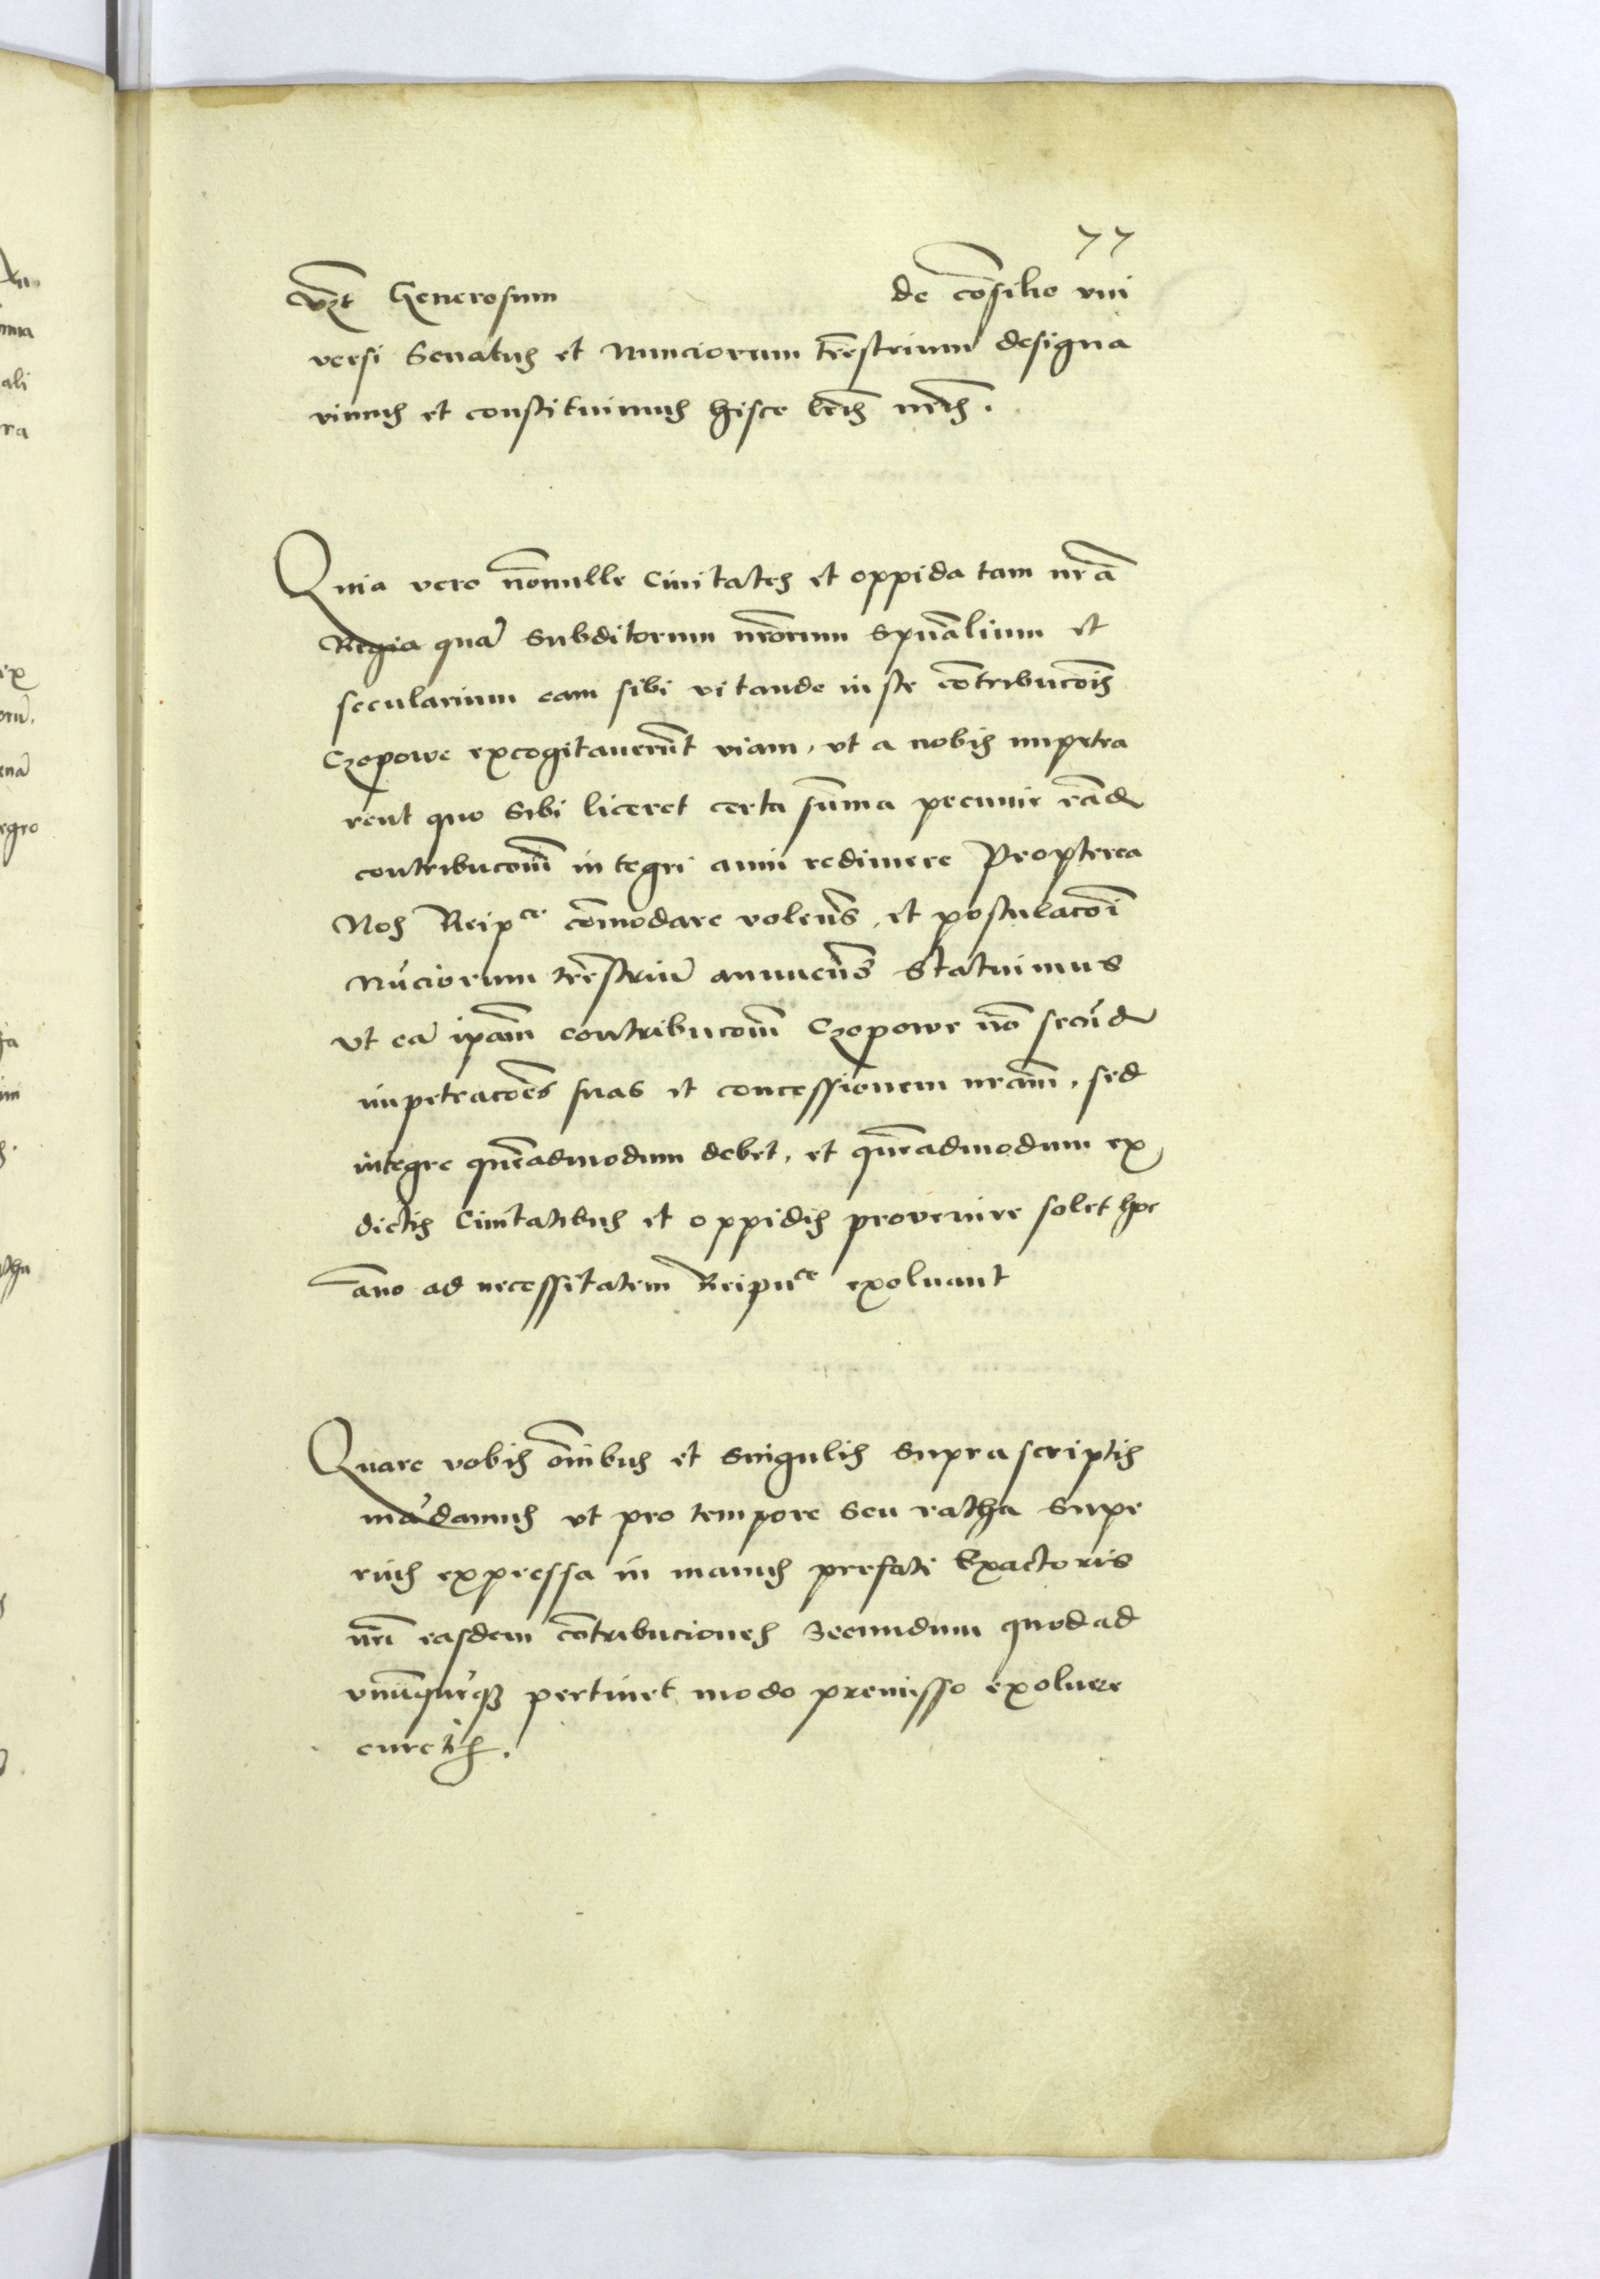 77
vȝt Generosum de cōsilio vni
versi Senatus et Nunciorum trēstrium designa
vimus et constituimus hisce lr̄is nr̄is.
Quia vero nōnulle Civitates et oppida tam nr̄a
Regia quā Subditorum nr̄orum Spūalium et
secularium eam sibi vitande iuste cōtribucōis
Czopowe excogitaverūt viam, vt a nobis impetra
rent quo Sibi liceret certa sūma pecunie eād
contribucōm integri anni redimere Propterea
Nos Reipce cōmodare volens, et postulacōi
Nūciorum trēstriū annuens Statuimus
vt eā ip̄am contribucōm Czopowe nō secūd
impetracōes suas et concessionem nr̄am, sed
integre quēadmodum debet, et quēadmodum ex
dictis Civitatibus et oppidis provenire solet hoc
āno ad necessitatem Reipuce exolvant
Quare vobis ōnibus et Singulis Suprascriptis
mādamus vt pro tempore Seu ratha Supe
rius expressa in manus prefati Exactoris
nr̄i easdem cōtribuciones Secundum quod ad
vnūquēqȝ pertinet modo premisso exolvere
curetis.